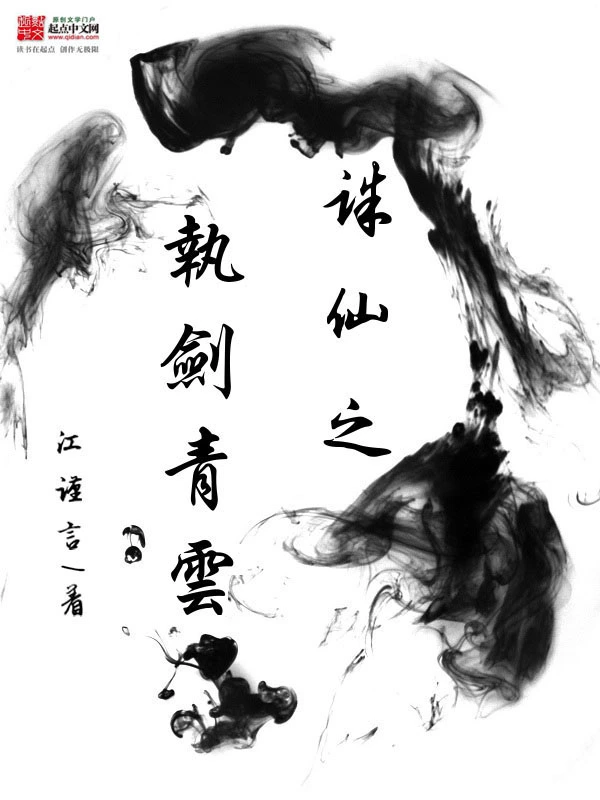 原创文学门户
起点中文网
www.qidian.com
读书在起点 创作无极限
诛仙之
執劍青雲
江谨言/着